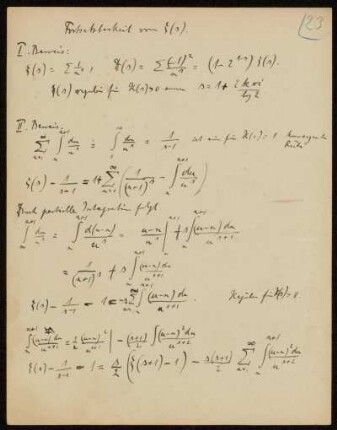 Fortsetzbarkeit von ζ(s).
23
I. Beweis:
ζ(s) = Σ 1/n^s, = Σ (-1)^n/n^s = (1-2^{1-s}) ζ(s).
ζ(s) regulär für R(s)>0 ausser s = 1 + 2kπi/lg 2
II. Beweis.
Σ_{n=1}^∞ ∫_n^{n+1} du/u^s = ∫_1^∞ du/u^s = 1/(s-1) ist ein für R(s)>1 konvergente
Reihe
ζ(s) - 1/(s-1) = 1 + Σ_{n=1}^∞ (1/(n+1)^s - ∫_n^{n+1} du/u^s)
Durch partielle Integration folgt
∫_n^{n+1} du/u^s = ∫_n^{n+1} d(u-n)/u^s = (u-n)/u^s |_n^{n+1} + s ∫_n^{n+1} (u-n)du/u^{s+1}
= 1/(n+1)^s + s ∫_n^{n+1} (u-n)du/u^{s+1}
ζ(s) - 1/(s-1) - 1 = -s Σ_{n=1}^∞ ∫_n^{n+1} (u-n)du/u^{s+1}. Regulär für R(s)>0.
∫_n^{n+1} (u-n)du/u^{s+1} = 1/2 (u-n)^2/u^{s+1} | - (s+1)/2 ∫ (u-n)^2 du/u^{s+2}
ζ(s) - 1/(s-1) - 1 = s/2 (ζ(s+1) - 1) - s(s+1)/2 Σ_{n=1}^∞ ∫_n^{n+1} (u-n)^2 du/u^{s+2}